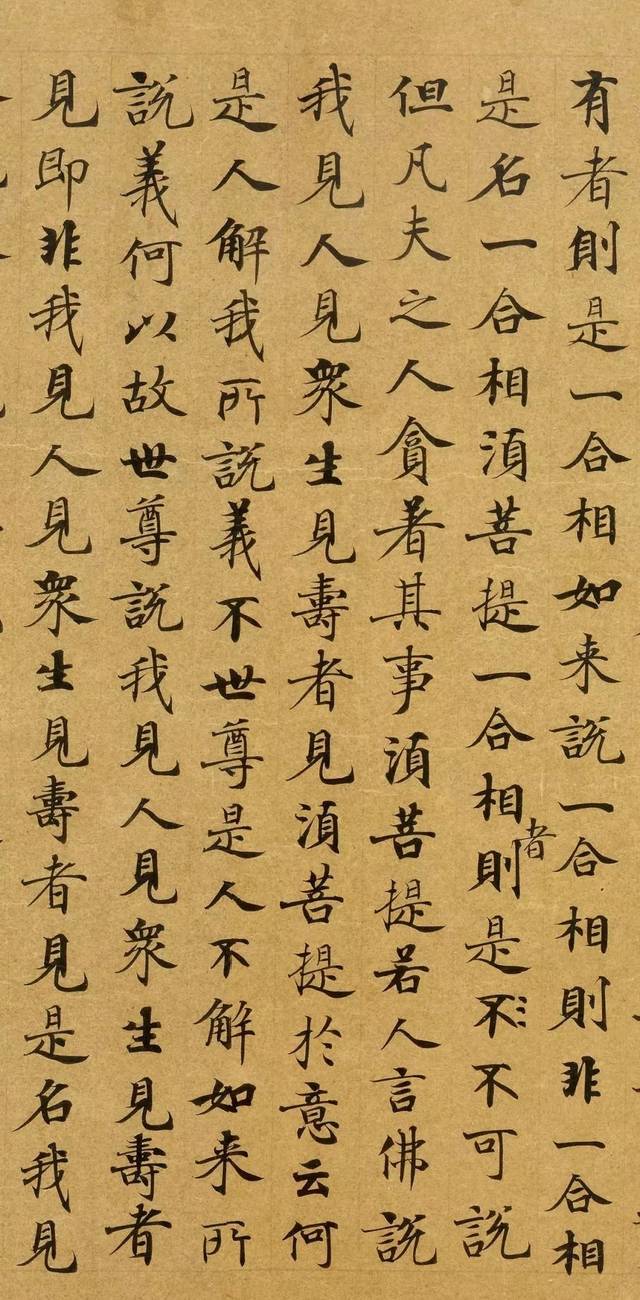 有者則是一合相如来說一合相則非一合相
是名一合相湏菩提一合相者則是不不可說
但凡夫之人貪著其事湏菩提若人言佛說
我見人見衆生見壽者見湏菩提於意云何
是人解我所說義不世尊是人不解如来所
說義何以故世尊說我見人見衆生見壽者
見即非我見人見衆生見壽者見是名我見